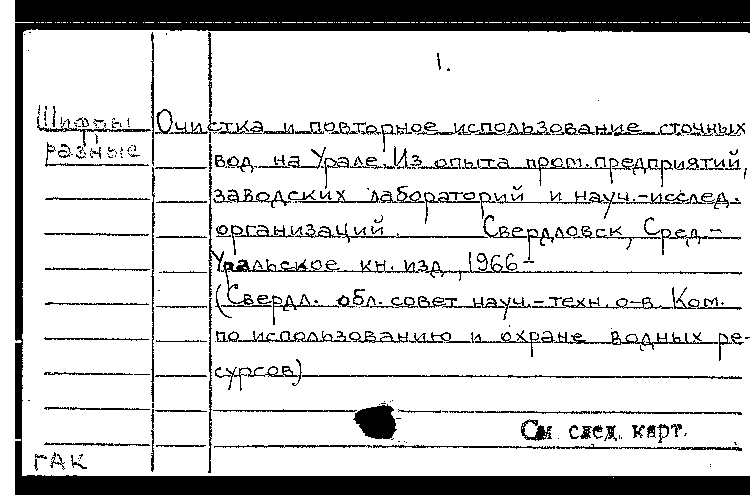 1.
Шифры Очистка и повторное использование сточных
разные вод на Урале. Из опыта пром. предприятий,
заводских лабораторий и науч.-исслед.
организаций. Свердловск, Сред.-
Уральское кн. изд., 1966-
(Свердл. обл. совет науч.-техн. о-в. Ком.
по использованию и охране водных ре-
сурсов)
См. след. карт.
ГАК